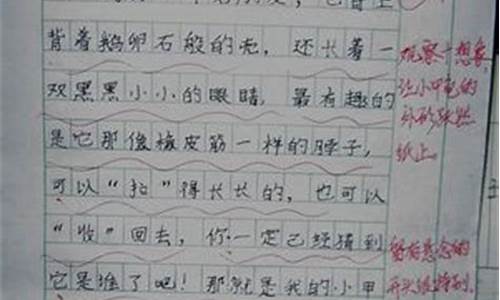 背着鹅卵石般的壳，还长着一
双黑黑小小的眼睛，最有趣的
是它那像橡皮筋一样的脖子，
可以“拉”得长长的，也可以
“收”回去，你一定已经猜到
它是谁了吧！那就是我的小甲
观察+想象，
让小甲龟的
外形跃然
纸上。
留有悬念的
开头很特别。